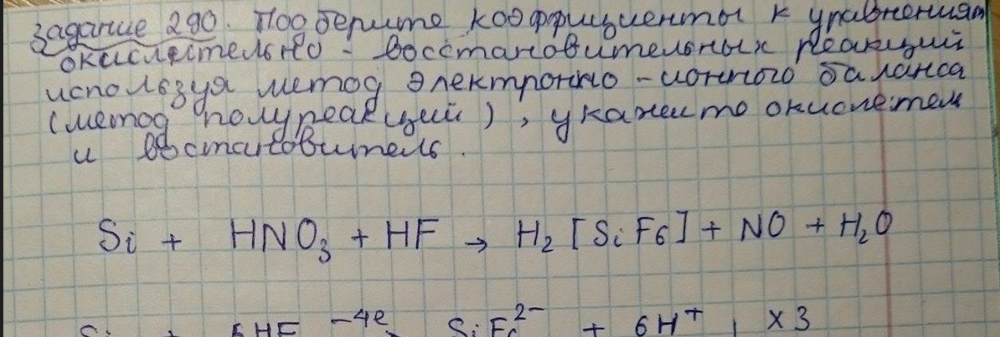 Задание 290. Подберите коэффициенты к уравнениям
окислительно - восстановительных реакций
используя метод электронно - ионного баланса
(метод полуреакций), укажите окислетель
и восстановитель.
Si + HNO₃ + HF → H₂[SiF6] + NO + H₂O
Si + 6HF -4e SiF₆²⁻ + 6H⁺ | ×3